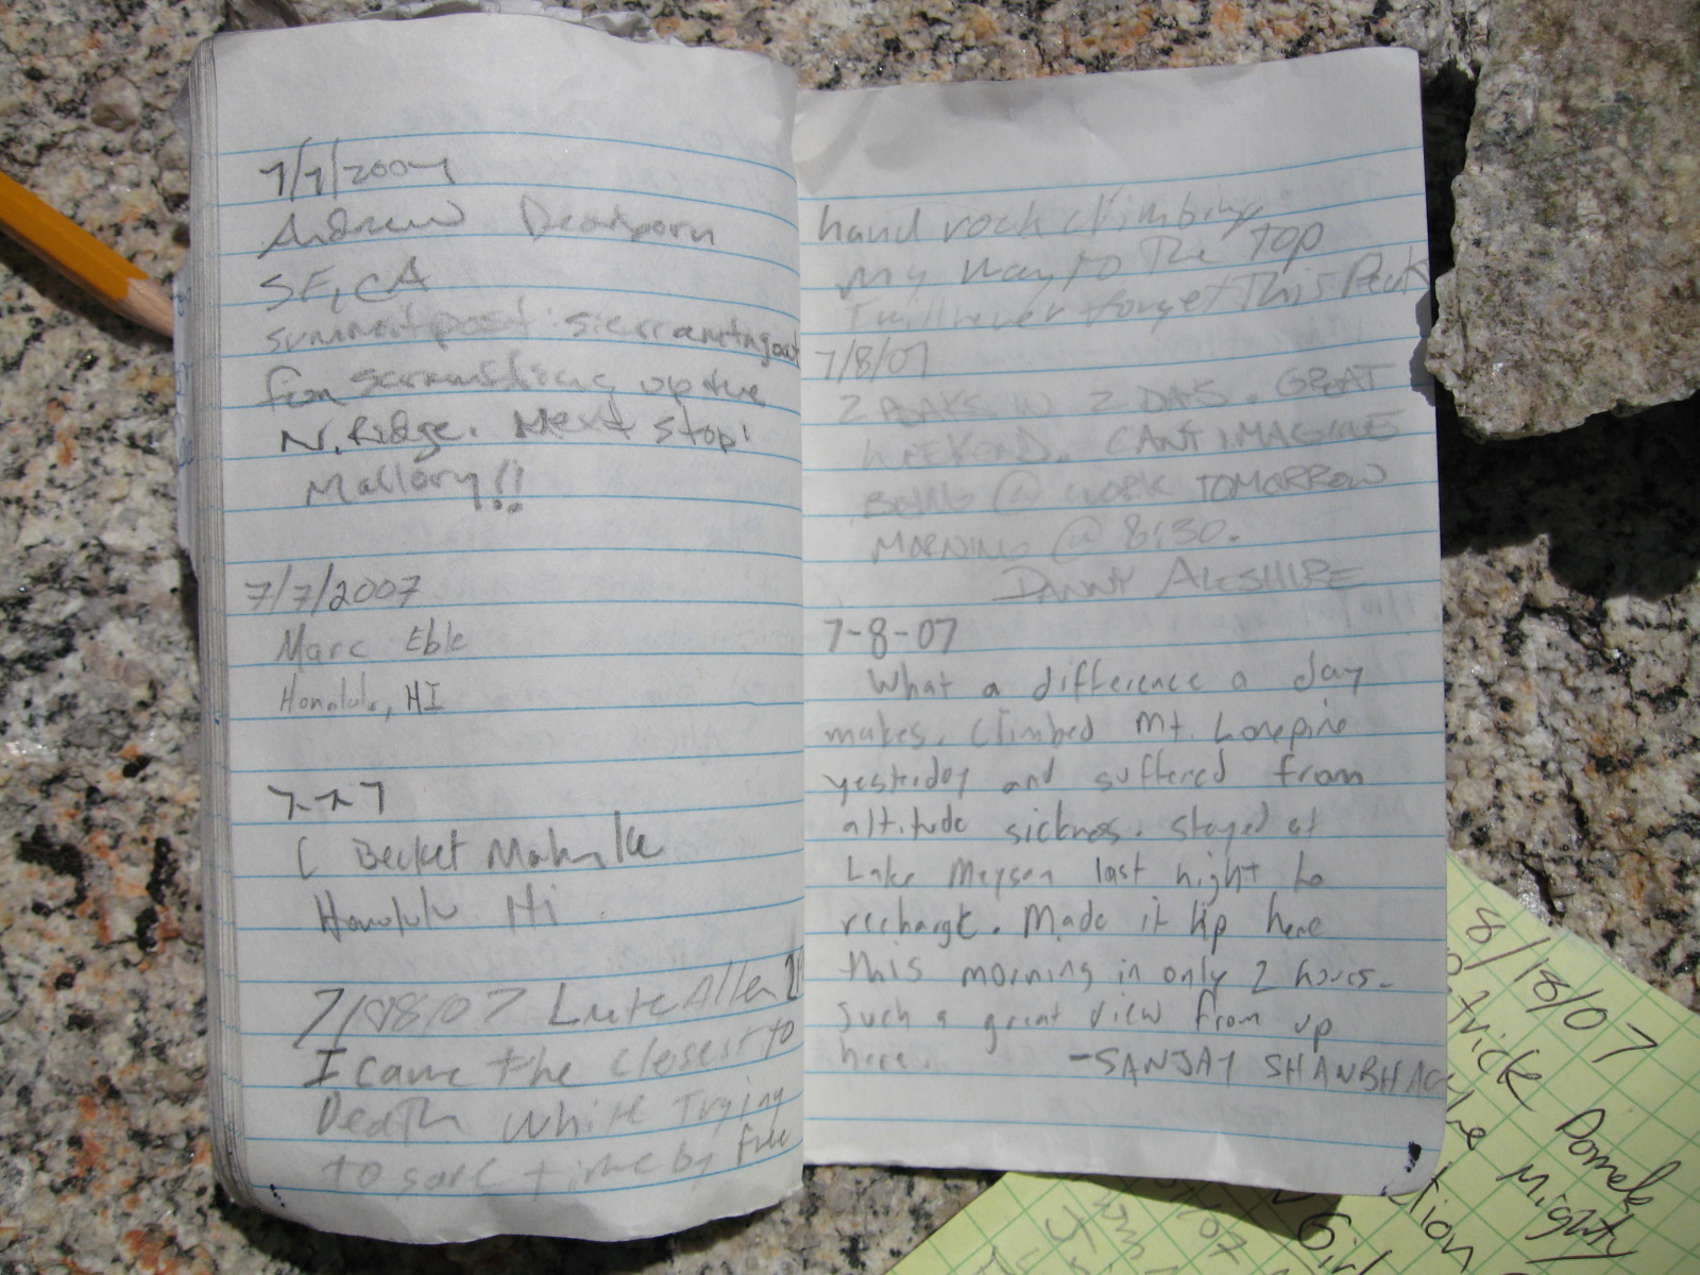 7/7/2007
Andrew Dearborn
SF, CA
summitpost: sierramtnguy
fun scrambling up the
N. Ridge. Next stop:
Mallory!!
7/7/2007
Marc Eble
Honolulu, HI
7-7-7
C Becket
Honolulu Hi
7/08/07 Luke Allen
I came the closest to
Death while Trying
to save time by free
hand rock climbing
my way to The Top
I will never forget This Peak
7/8/07
2 PEAKS IN 2 DAYS. GREAT
WEEKEND. CANT IMAGINE
BEING @ WORK TOMORROW
MORNING @ 8:30.
DANNY ALESHIRE
7-8-07
What a difference a day
makes. Climbed Mt. Lonepine
yesterday and suffered from
altitude sickness. Stayed at
Lake Meysan last night to
recharge. Made it up here
this morning in only 2 hours.
Such a great view from up
here. -SANJAY SHANBHAG
8/18/07
trick Pomek
Mighty
ction
Girl
07